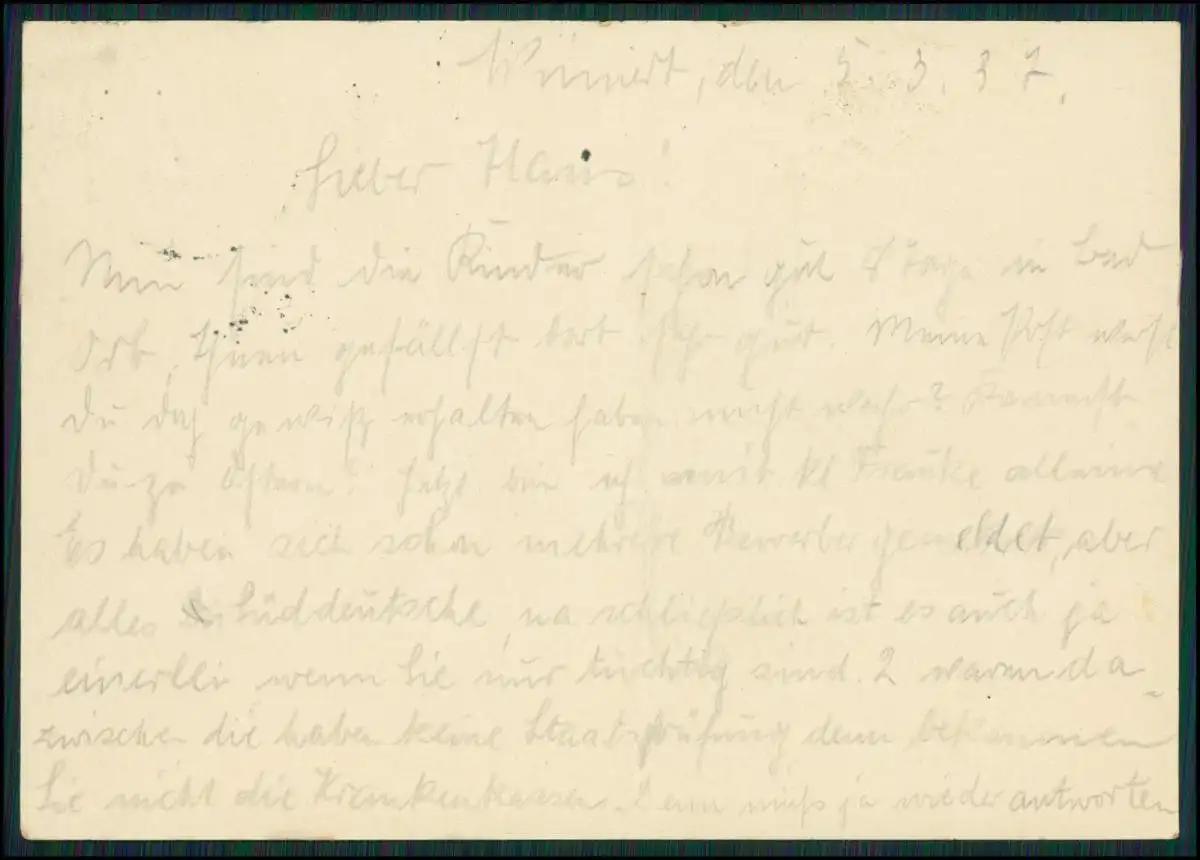 den 5.3.37.
Lieber Hans!
Nun sind die Kinder schon gut 8 Tage in Bad
Orb, Ihnen gefällt dort sehr gut. Meine Post wirst
Du doch gewiß erhalten haben nicht wahr? Kommst
Du zu Ostern? Jetzt bin ich mit kl Frauke alleine
Es haben sich schon mehrere Bewerber gemeldet, aber
alles Süddeutsche, na schließlich ist es auch ja
einerlei wenn Sie nur tüchtig sind. 2 waren da-
zwischen die haben keine Staatsprüfung denn bekommen
Sie nicht die Krankenkassen. muß ja wieder antworten